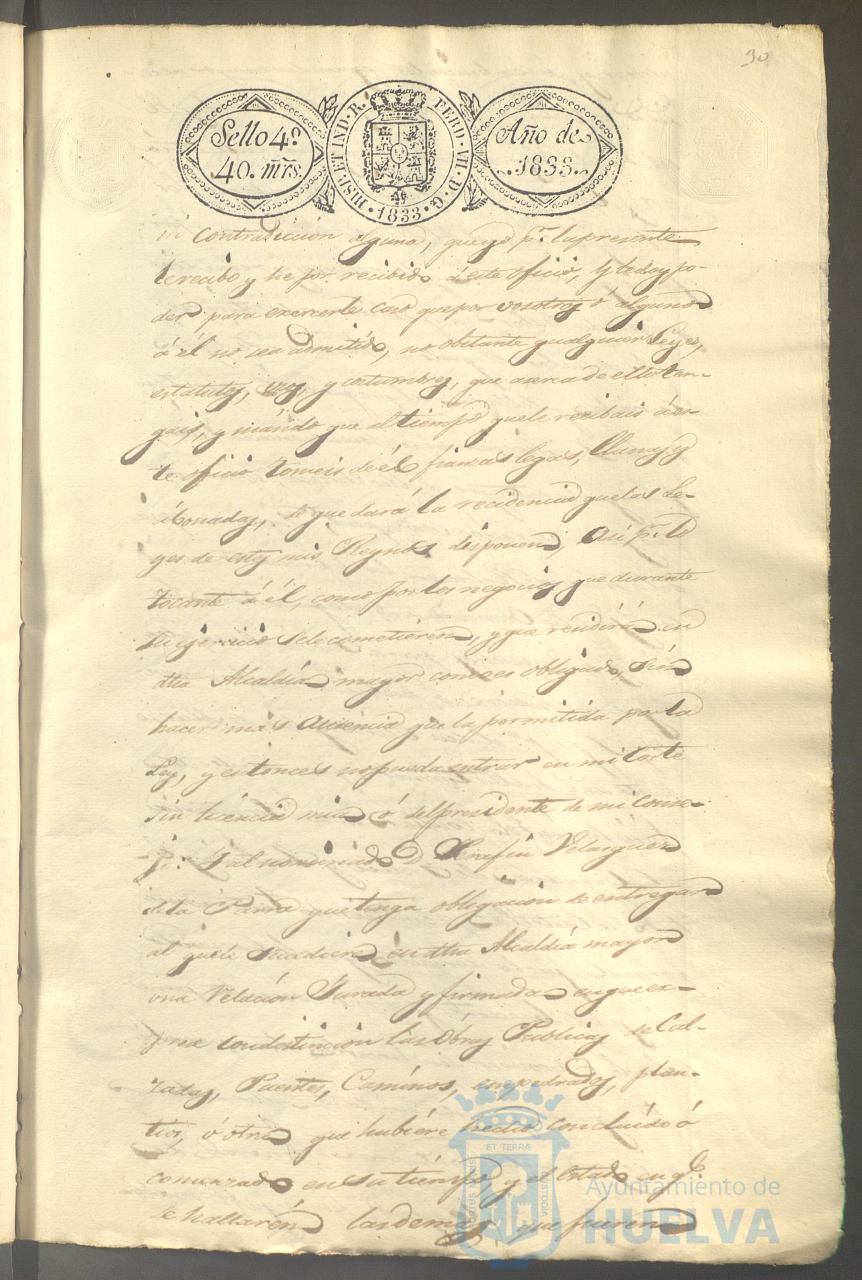 30
Sello 4º
40. mrs.
HISP. ET IND. R. FERD. VII. D. G.
1833
Año de
1833.
ni contradiccion alguna, que yo pr. la presente
le recibo y he por recibido á este oficio, y le doy po-
der para exercerle caso que por vosotros ó alguno
á él no sea admitido, no obstante qualquier Leyes,
estatutos, usos, y costumbres, que acerca de ello ten-
gais, y mando que al tiempo que le recibais á es-
te oficio tomeis de él fianzas legas, llanas y
abonadas, de que dará la recidencia que las Le-
yes de estos mis Reynos disponen, asi pr. lo
tocante á él, como por los negocios que durante
su ejercicio se le cometieren, y que rendirá en
dha Alcaldía mayor como es obligado, sin
hacer más ausencia que la permitida por la
Ley, y entonces no pueda entrar en mi Corte
sin licencia mia ó del presidente de mi Conse-
jo: Y al nominado D. Serafin Velasquez
de la Parra que tenga obligacion de entregar
al que le sucediere en dha Alcaldía mayor
una Relacion Jurada y firmada en que ex-
prese con distincion las Obras Publicas de Cal-
zadas, Puentes, Caminos, empedrados, plan-
tios, ó otras que hubiere hecho concluido ó
comenzado en su tiempo y el estado en q.
se hallaren las demas que fueren
ET TERRÆ
Ayuntamiento de
HUELVA